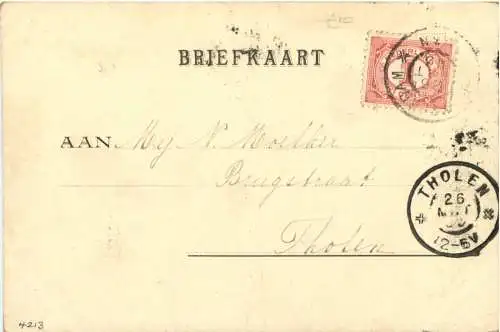 BRIEFKAART
AAN Mej N. Moelker
Brugstraat
Tholen
THOLEN
26
12-6V
4213